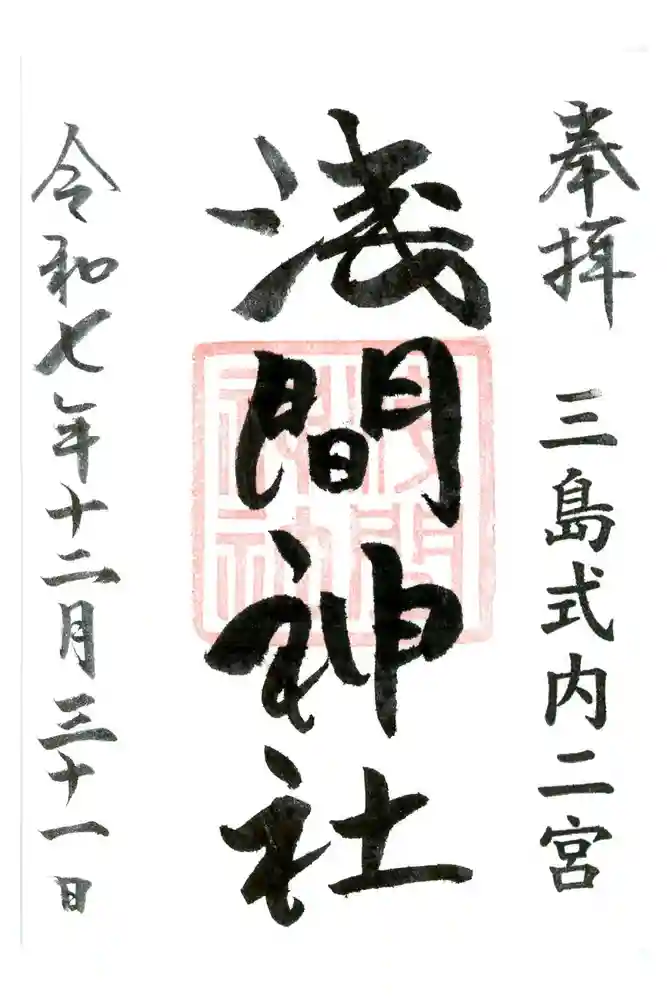 奉拝　三島式内二宮
浅間神社
令和七年十二月三十一日
浅間
神社